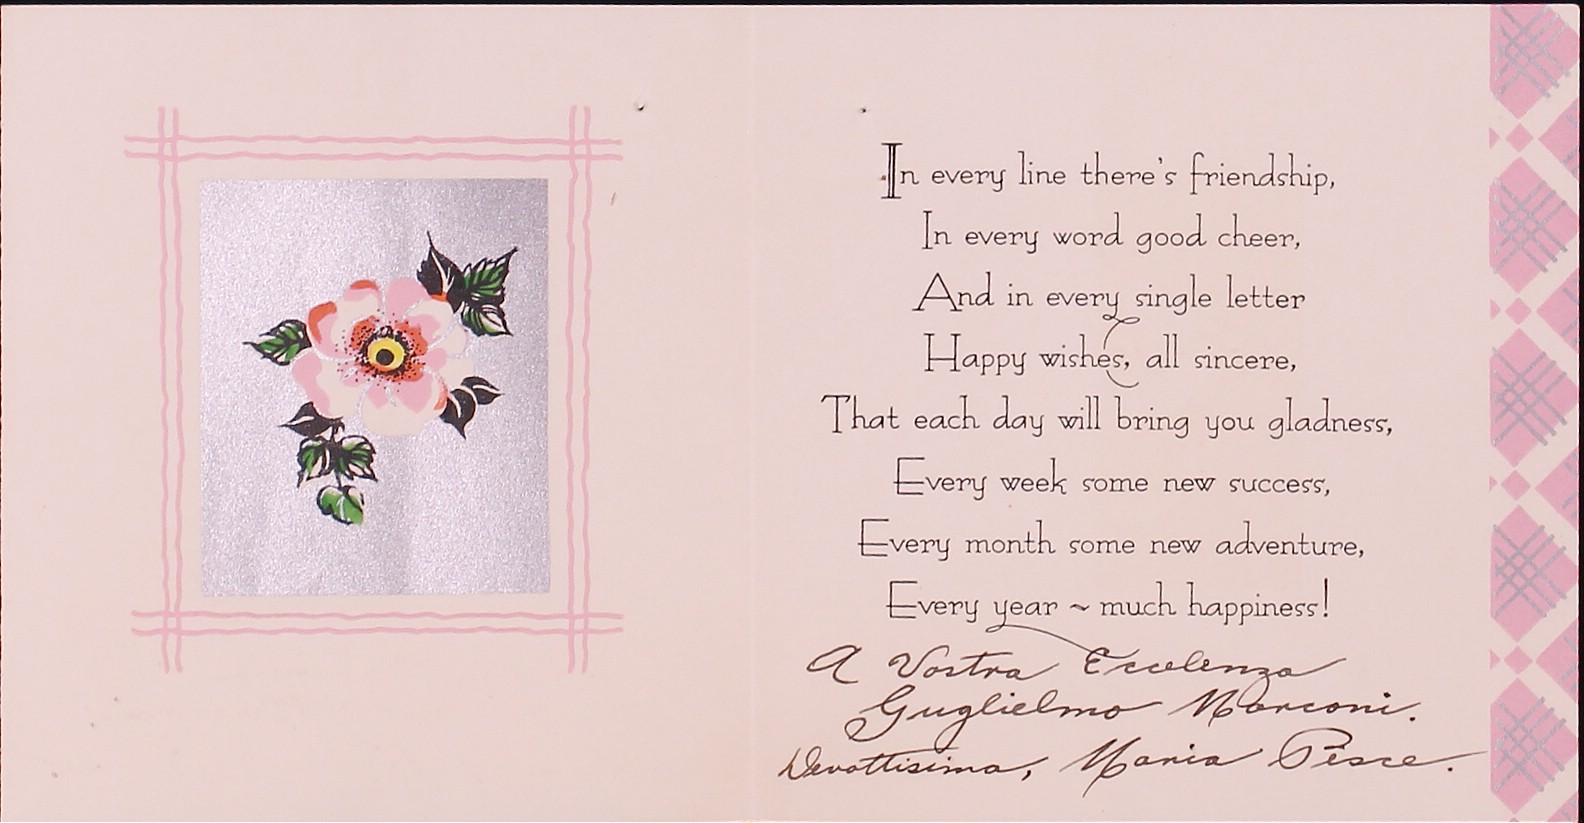 In every line there's friendship,
In every word good cheer,
And in every single letter
Happy wishes, all sincere,
That each day will bring you gladness,
Every week some new success,
Every month some new adventure,
Every year ~ much happiness!
A Vostra Eccelenza
Guglielmo Marconi.
Devottisima, Maria Pesce.